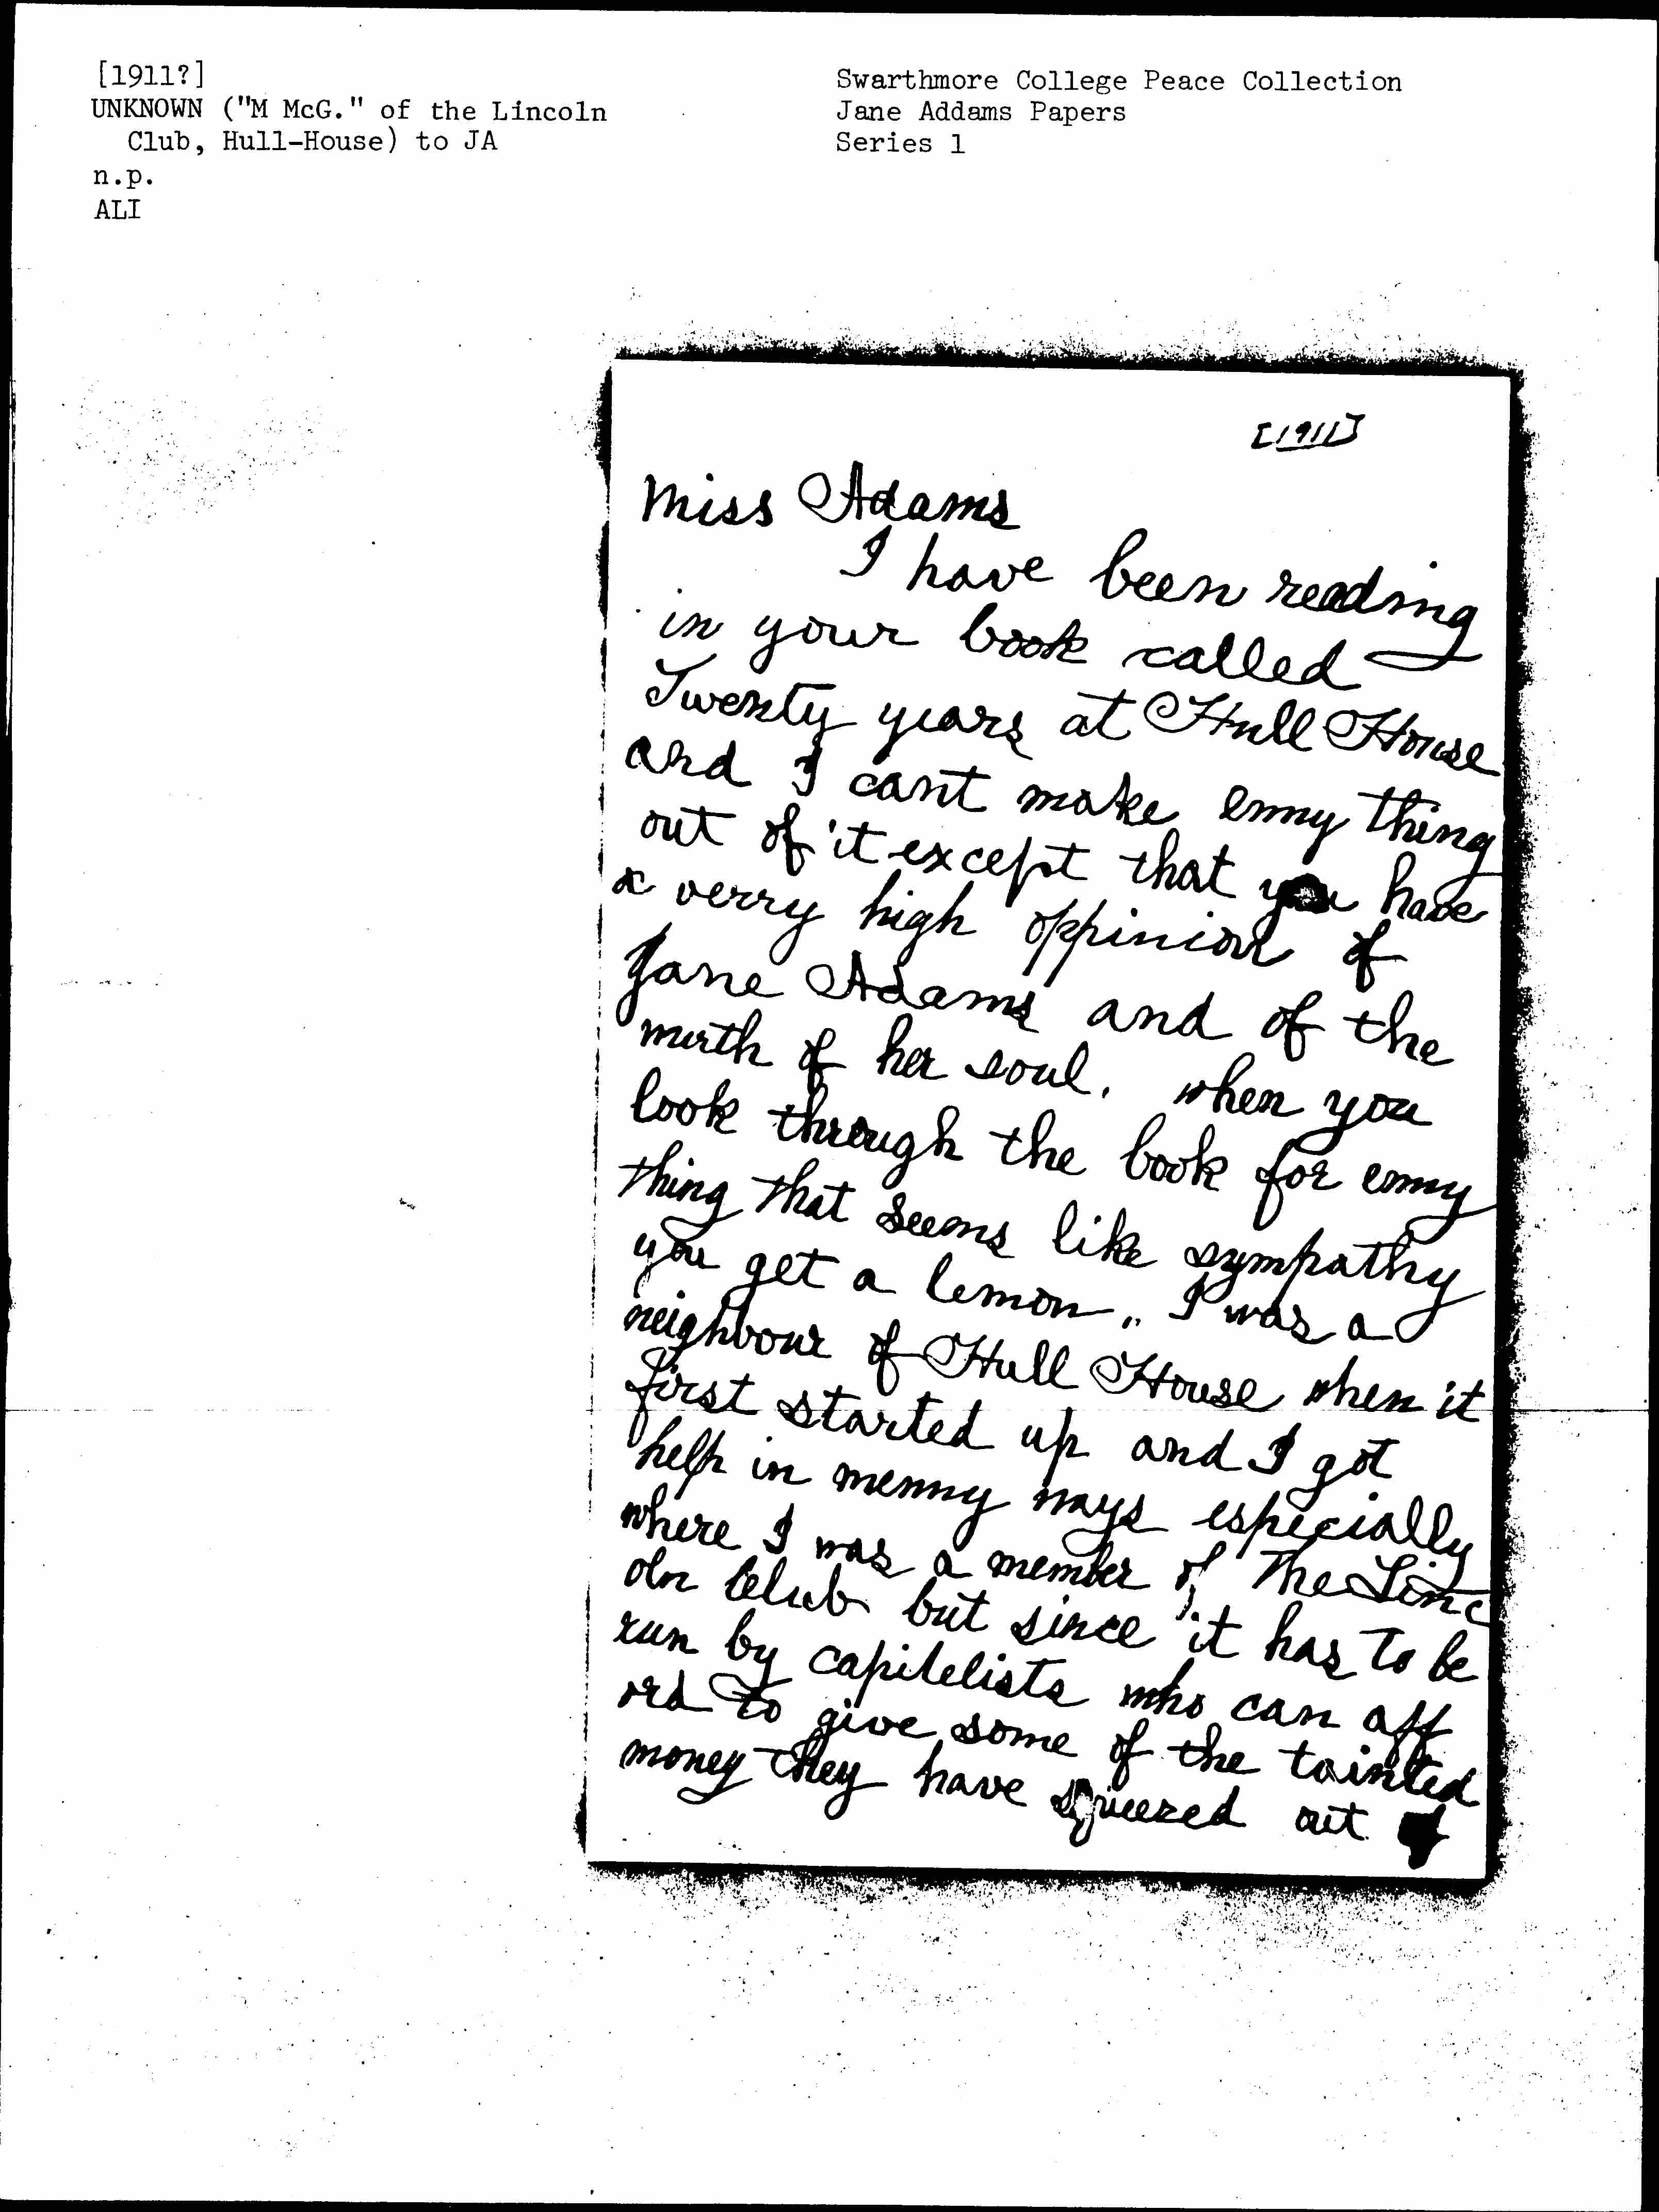 [1911?]
UNKNOWN ("M McG." of the Lincoln
Club, Hull-House) to JA
n.p.
ALI
Swarthmore College Peace Collection
Jane Addams Papers
Series 1
[1911]
Miss Adams
I have been reading
in your book called
Twenty years at Hull House
and I cant make enny thing
out of it except that you have
a verry high oppinion of
Jane Adams and of the
mirth of her soul. when you
look through the book for enny
thing that seems like sympathy
you get a lemon,, I was a
neighbour of Hull House when it
first started up and I got
help in menny ways especially
where I was a member of The Linc
oln Club but since it has to be
run by capitelists who can aff
ord to give some of the tainted
money they have squeezed out of